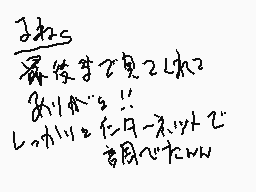 よねs
最後まで見てくれて
ありがと!!
しっかりとインターネットで
調べたんん